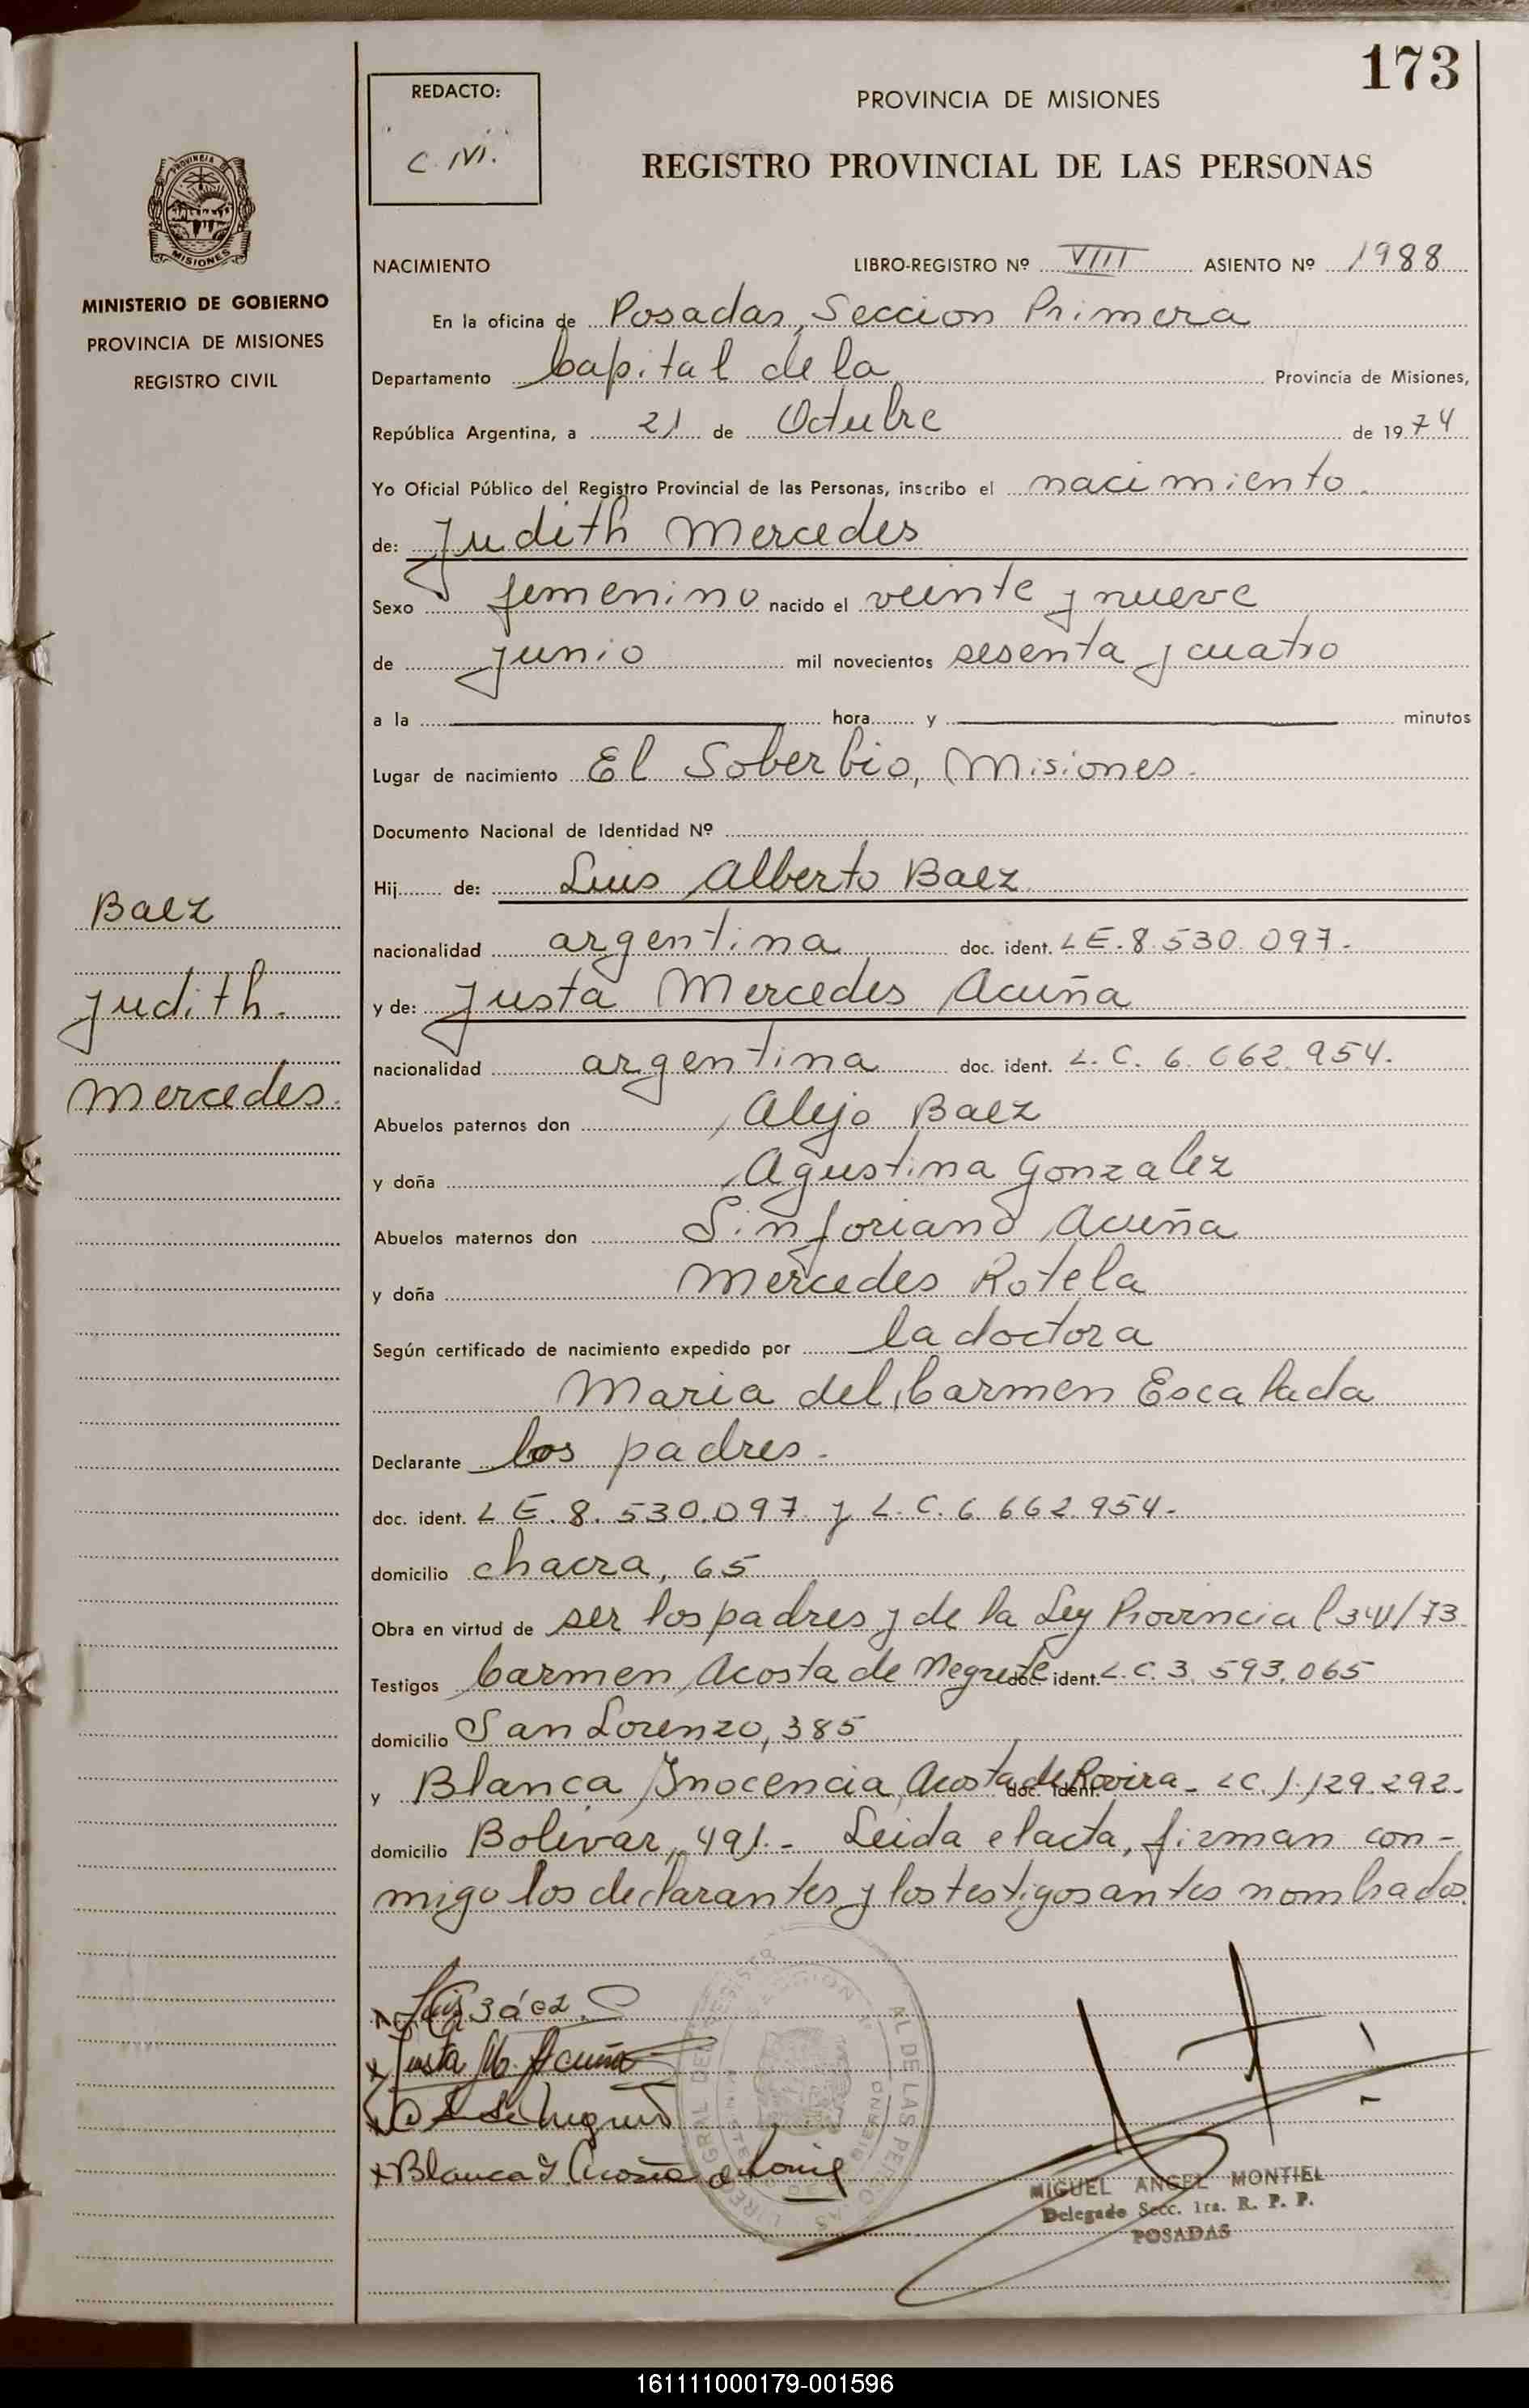 173
REDACTO:
C. M.
PROVINCIA DE MISIONES
REGISTRO PROVINCIAL DE LAS PERSONAS
PROVINCIA
MISIONES
MINISTERIO DE GOBIERNO
PROVINCIA DE MISIONES
REGISTRO CIVIL
NACIMIENTO LIBRO-REGISTRO Nº VIII ASIENTO Nº 1988
En la oficina de Posadas, Seccion Primera
Departamento Capital de la Provincia de Misiones,
República Argentina, a 21 de Octubre de 1974
Yo Oficial Público del Registro Provincial de las Personas, inscribo el nacimiento
de: Judith Mercedes
Sexo femenino nacido el veinte y nueve
de junio mil novecientos sesenta y cuatro
a la hora y minutos
Lugar de nacimiento El Soberbio, Misiones.
Documento Nacional de Identidad Nº
Hij de: Luis Alberto Baez
nacionalidad argentina doc. ident. LE. 8.530.097.
y de: Justa Mercedes Acuña
nacionalidad argentina doc. ident. L.C. 6.662.954.
Abuelos paternos don Alejo Baez
y doña Agustina Gonzalez
Abuelos maternos don Sinforiano Acuña
y doña Mercedes Rotela
Según certificado de nacimiento expedido por la doctora
Maria del Carmen Escalada
Declarante los padres.
doc. ident. LE. 8.530.097 y L.C. 6.662.954-
domicilio chacra, 65
Obra en virtud de ser los padres y de la Ley Provincial 341/73
Testigos Carmen Acosta de Negrete doc. ident. L.C. 3.593.065
domicilio San Lorenzo, 385
y Blanca Inocencia Acosta de Rovira - doc. ident. LC. 1.129.292-
domicilio Bolivar, 491.- Leida el acta, firman con-
migo los declarantes y los testigos antes nombrados.
Baez
Judith.
Mercedes.
Luis Báez
Justa M. Acuña
Blanca I Acosta de
MIGUEL ANGEL MONTIEL
Delegado Secc. 1ra. R. P. P.
POSADAS
161111000179-001596